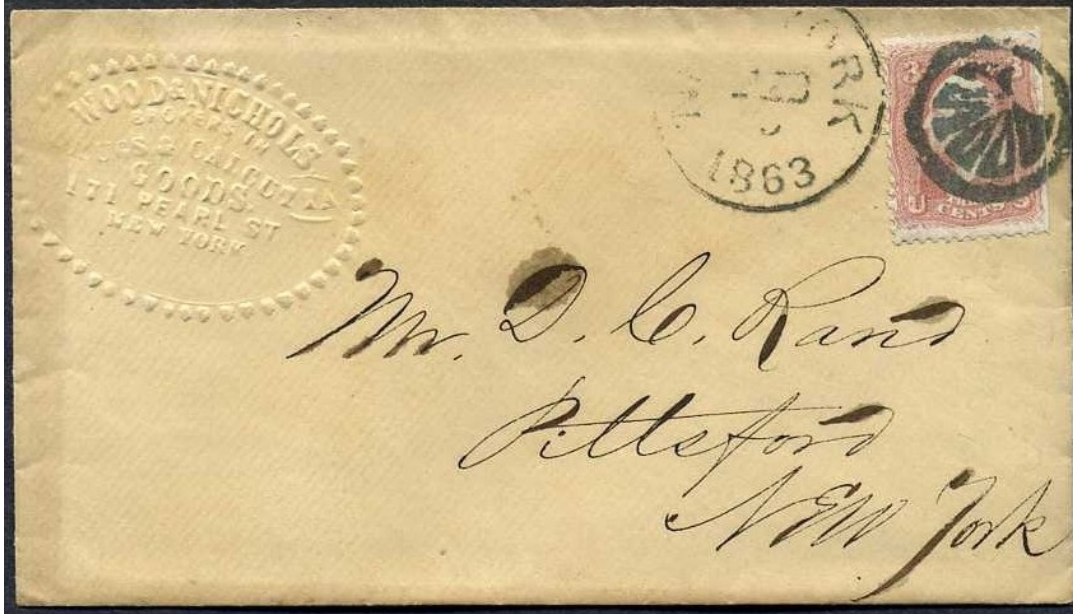 WOOD & NICHOLS
BROKERS IN
& CALCUTTA
GOODS.
171 PEARL ST
NEW YORK
YORK
1863
3
U S
CENTS
Mr. D. C. Rand
Pittsford
New York